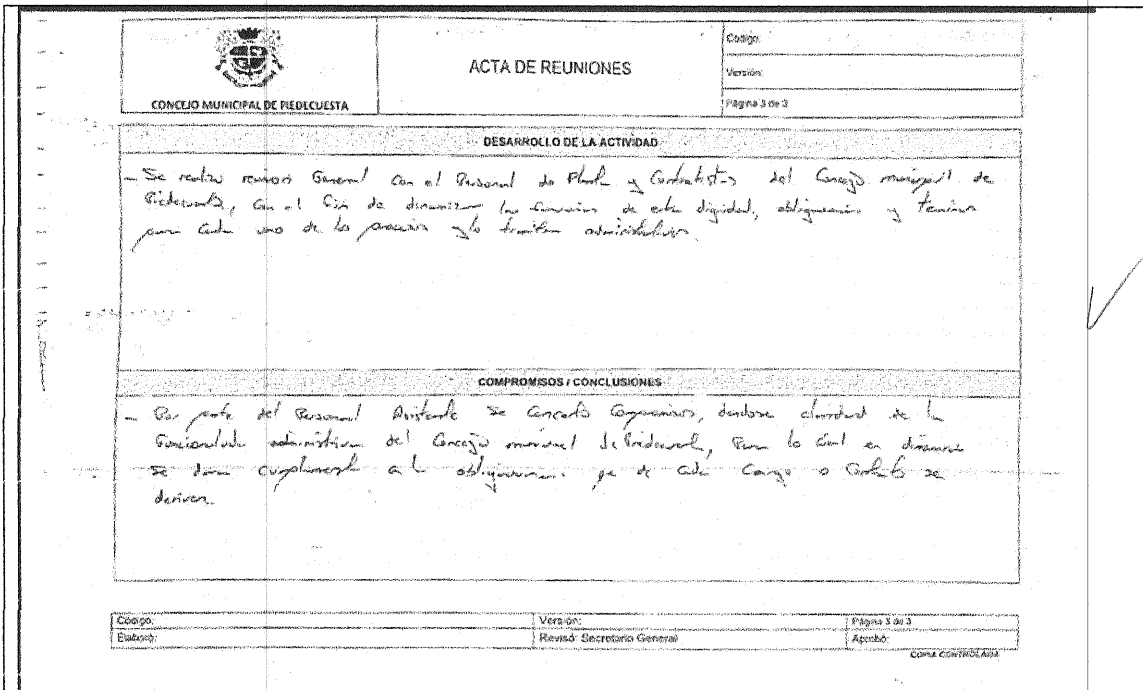 CONCEJO MUNICIPAL DE PIEDECUESTA
ACTA DE REUNIONES
Código:
Versión:
Página 3 de 3
DESARROLLO DE LA ACTIVIDAD
- Se realizo reunion General con el Personal de Planta y Contratistas del Concejo municipal de
Piedecuesta, con el fin de dinamizar las funciones de esta dignidad, obligaciones y
para cada uno de los procesos y/o tramites administrativos.
COMPROMISOS / CONCLUSIONES
- Por parte del Personal Asistente se Concerto Compromisos, dandose claridad de la
administrativa del Concejo municipal de Piedecuesta, Para lo cual en
se dara cumplimiento a las obligaciones que de cada Cargo o Contrato se
deriven.
Código:
Versión:
Página 3 de 3
Elaboró:
Revisó: Secretario General
Aprobó:
COPIA CONTROLADA